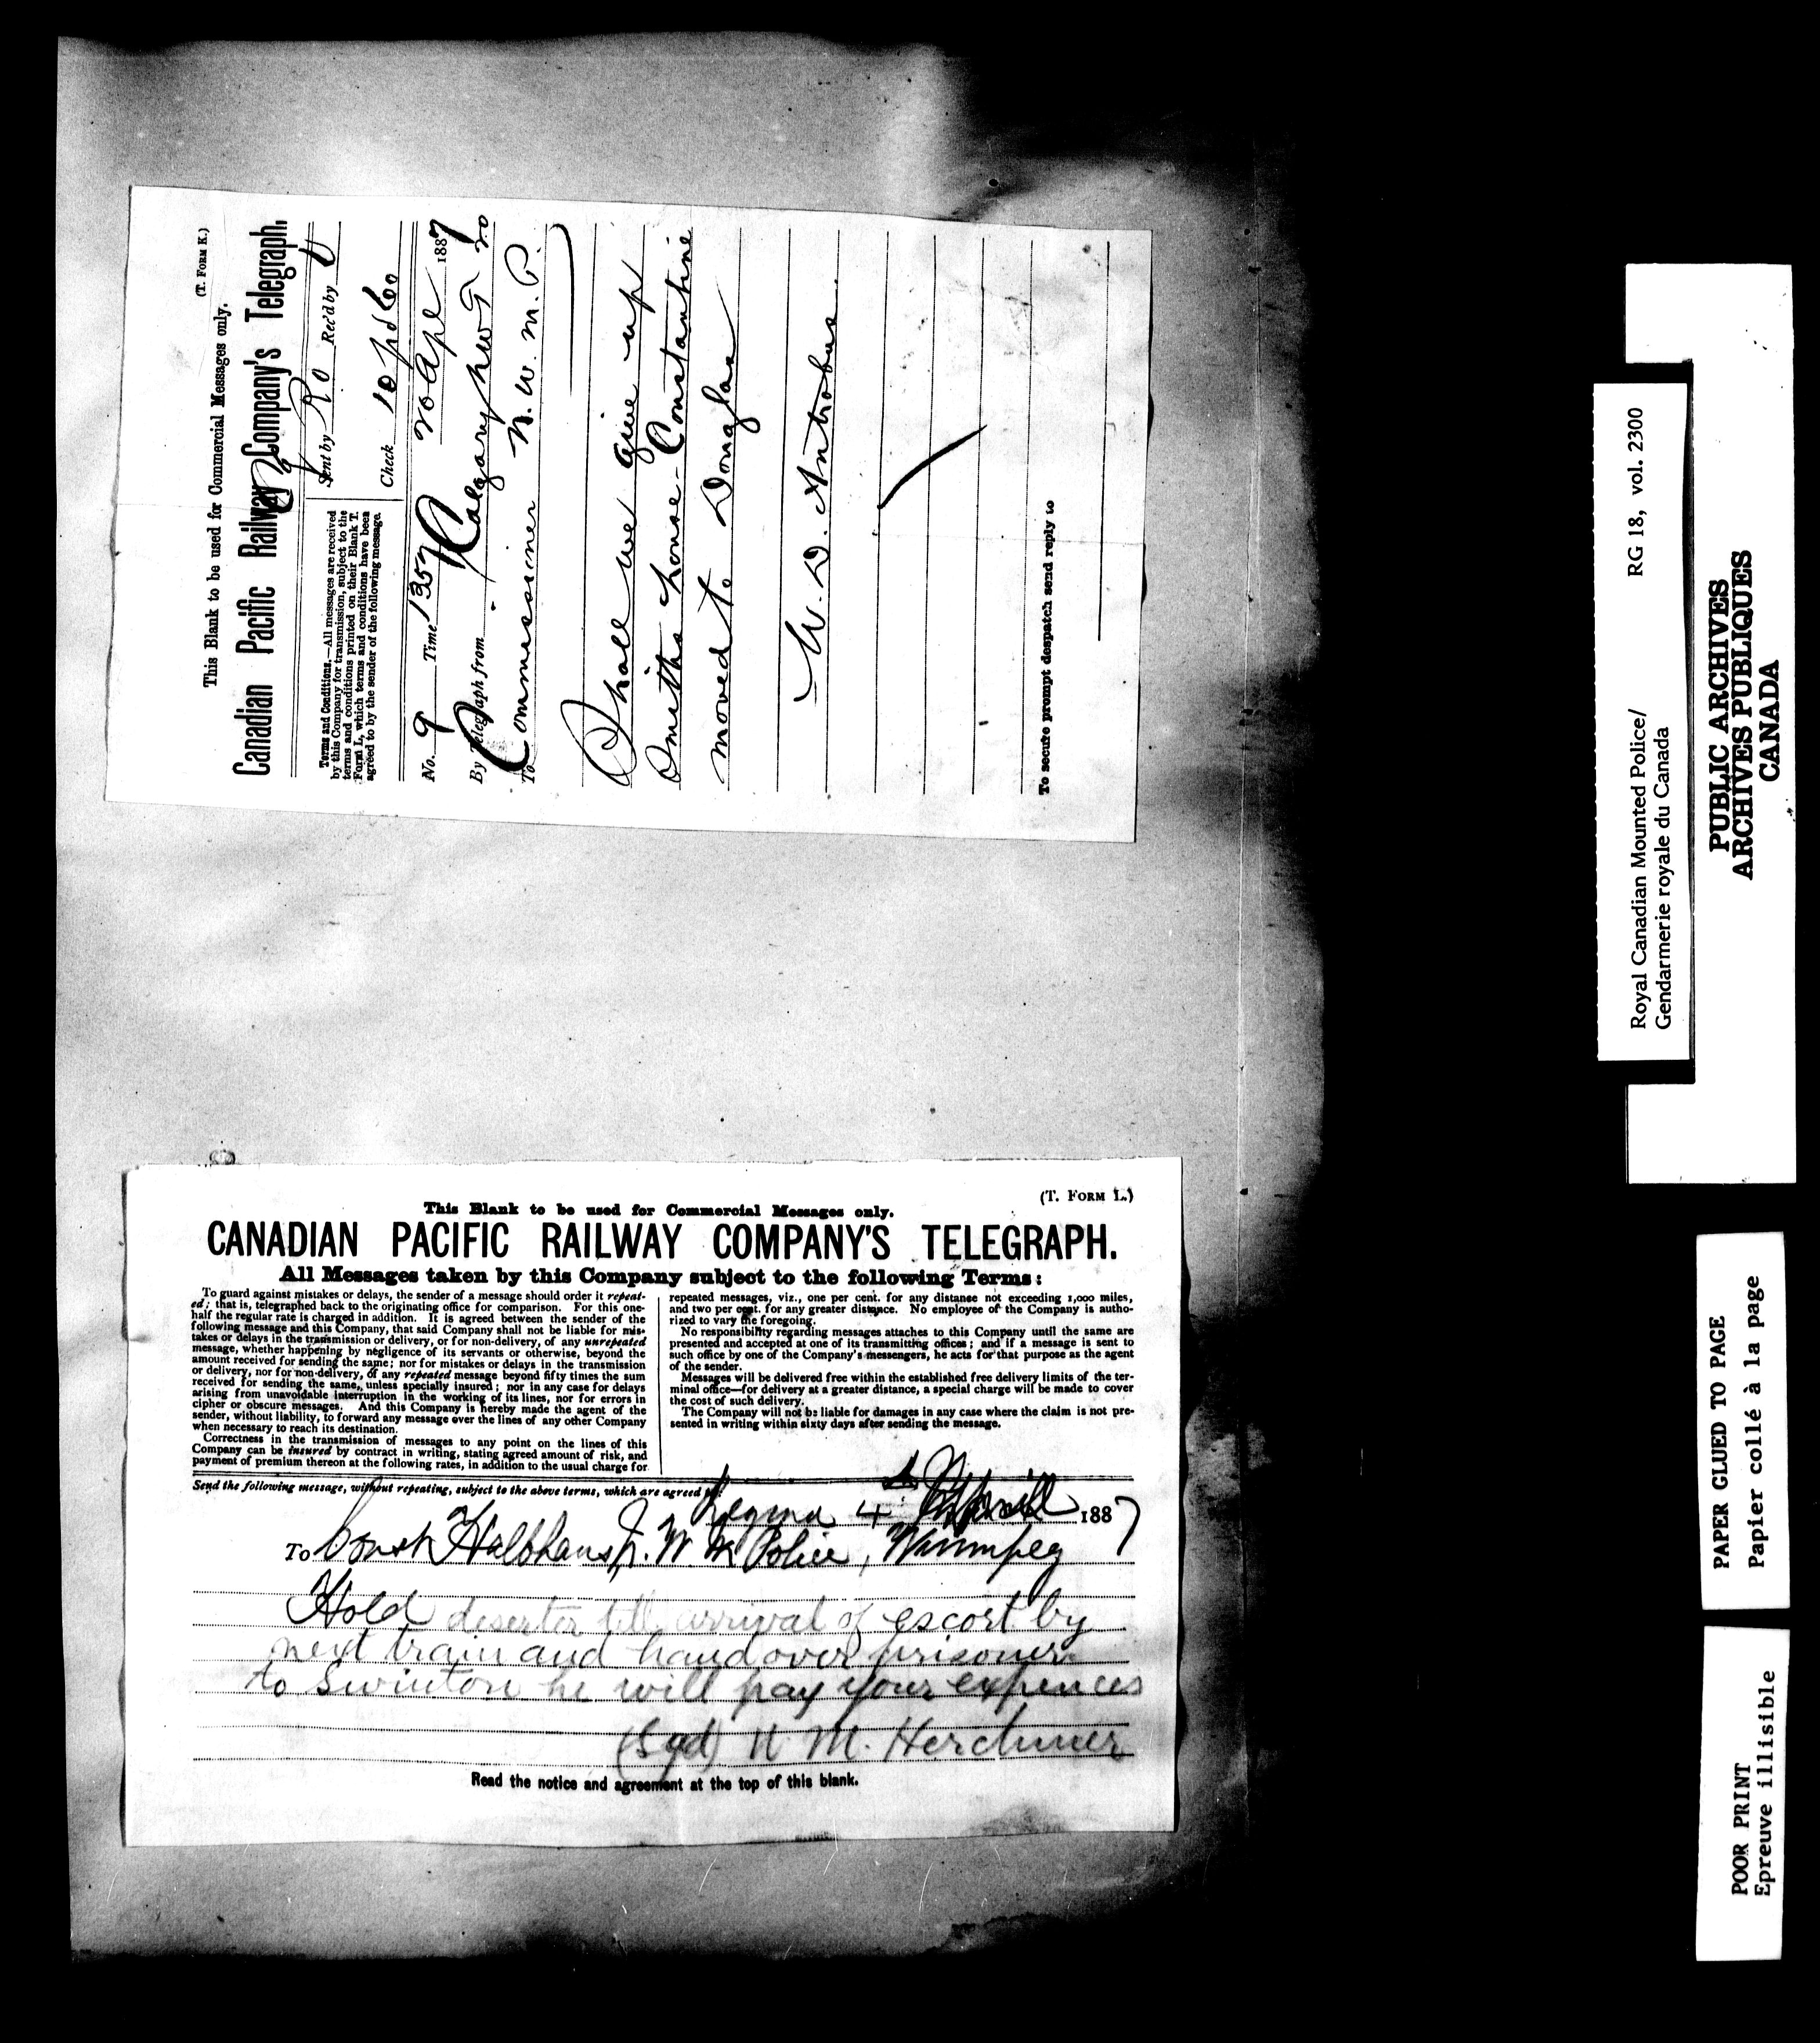 (T. FORM K.)
This Blank to be used for Commercial Messages only.
Canadian Pacific Railway Company's Telegraph.
Terms and Conditions.—All messages are received
by this Company for transmission, subject to the
terms and conditions printed on their Blank T.
Form L, which terms and conditions have been
agreed to by the sender of the following message.
Sent by RO Rec'd by
Check 10 pd 60
No. 9 Time 20 Apl 1887
By Telegraph from Calgary NWT 20
To Commissioner N. W. M. P.
Shall we give up
Smiths house - Constantine
moved to Douglas
W. D. Antrobus
To secure prompt despatch send reply to
(T. FORM L.)
This Blank to be used for Commercial Messages only.
CANADIAN PACIFIC RAILWAY COMPANY'S TELEGRAPH.
All Messages taken by this Company subject to the following Terms:
To guard against mistakes or delays, the sender of a message should order it repeat-
ed; that is, telegraphed back to the originating office for comparison. For this one-
half the regular rate is charged in addition. It is agreed between the sender of the
following message and this Company, that said Company shall not be liable for mis-
takes or delays in the transmission or delivery, or for non-delivery, of any unrepeated
message, whether happening by negligence of its servants or otherwise, beyond the
amount received for sending the same; nor for mistakes or delays in the transmission
or delivery, nor for non-delivery, of any repeated message beyond fifty times the sum
received for sending the same, unless specially insured; nor in any case for delays
arising from unavoidable interruption in the working of its lines, nor for errors in
cipher or obscure messages. And this Company is hereby made the agent of the
sender, without liability, to forward any message over the lines of any other Company
when necessary to reach its destination.
Correctness in the transmission of messages to any point on the lines of this
Company can be insured by contract in writing, stating agreed amount of risk, and
payment of premium thereon at the following rates, in addition to the usual charge for
repeated messages, viz., one per cent. for any distance not exceeding 1,000 miles,
and two per cent. for any greater distance. No employee of the Company is autho-
rized to vary the foregoing.
No responsibility regarding messages attaches to this Company until the same are
presented and accepted at one of its transmitting offices; and if a message is sent to
such office by one of the Company's messengers, he acts for that purpose as the agent
of the sender.
Messages will be delivered free within the established free delivery limits of the ter-
minal office—for delivery at a greater distance, a special charge will be made to cover
the cost of such delivery.
The Company will not be liable for damages in any case where the claim is not pre-
sented in writing within sixty days after sending the message.
Send the following message, without repeating, subject to the above terms, which are agreed to:
Regina 4 April 1887
To Const Halbhaus, N. W. M Police, Winnipeg
Hold deserter till arrival of escort by
next train and hand over prisoner
to Swinton he will pay your expences
(Sgd) H. M. Herchmer
Read the notice and agreement at the top of this blank.
Royal Canadian Mounted Police/ RG 18, vol. 2300
Gendarmerie royale du Canada
PUBLIC ARCHIVES
ARCHIVES PUBLIQUES
CANADA
PAPER GLUED TO PAGE
Papier collé à la page
POOR PRINT
Epreuve illisible